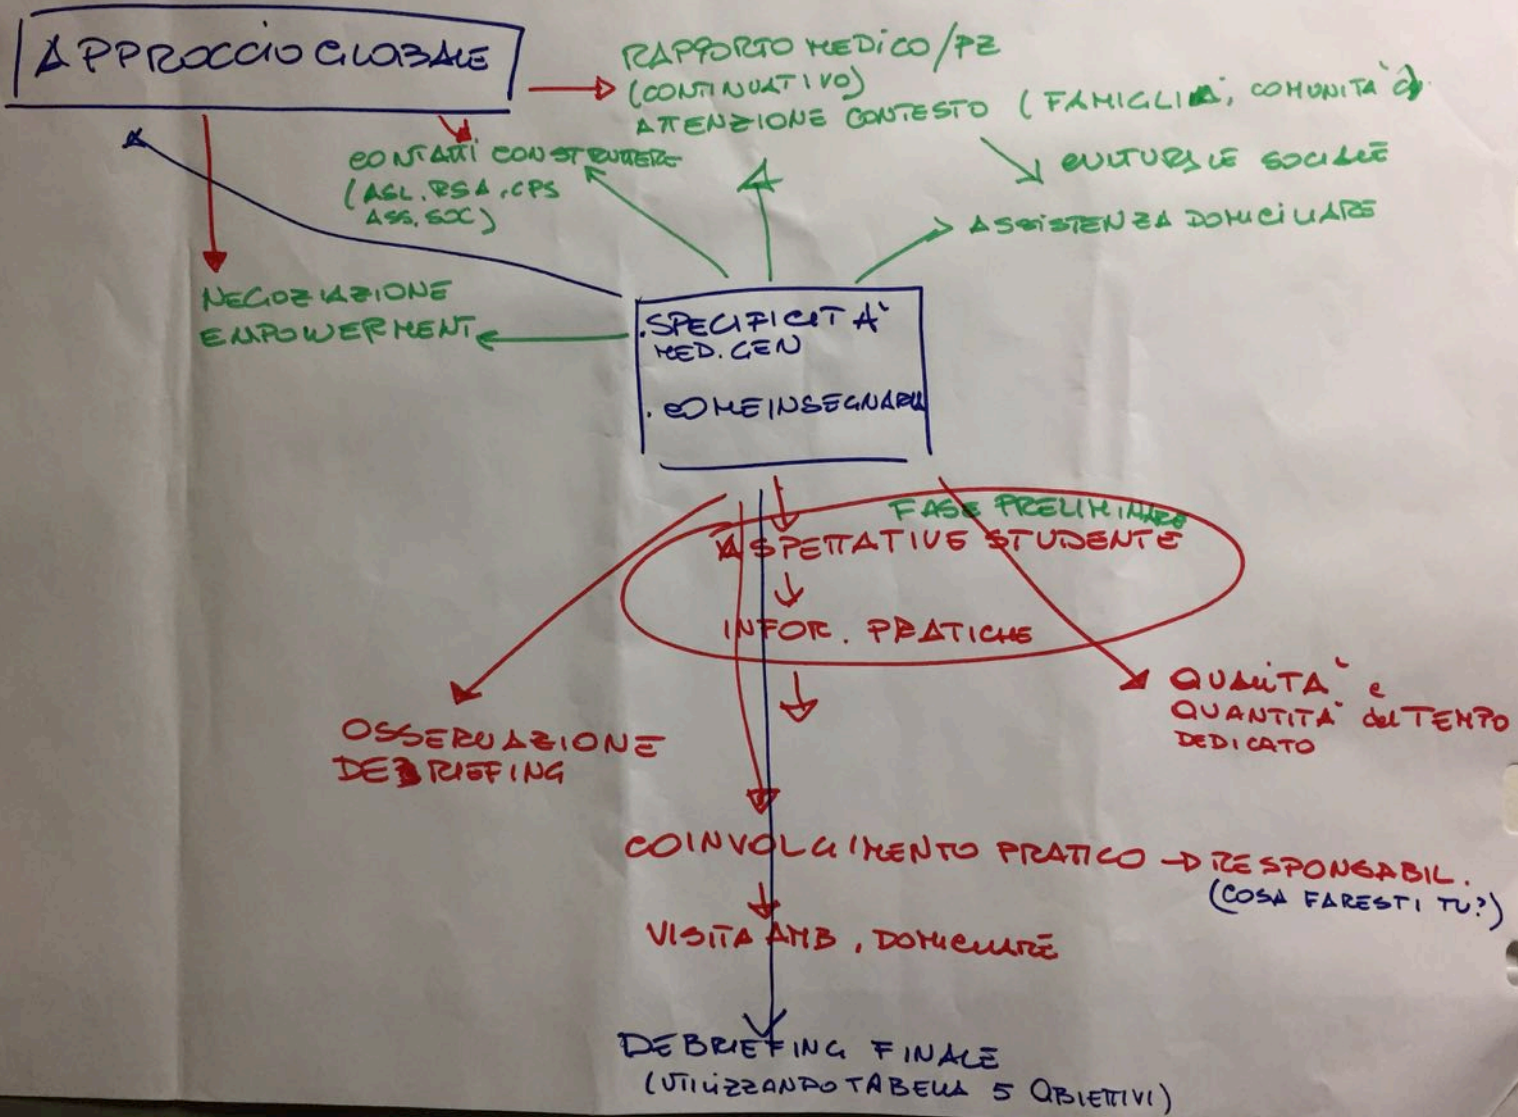 APPROCCIO GLOBALE
RAPPORTO MEDICO/PZ
(CONTINUATIVO)
ATTENZIONE CONTESTO (FAMIGLIA, COMUNITÀ)
CULTURALE SOCIALE
ASSISTENZA DOMICILIARE
CONTATTI CON STRUTTURE
(ASL, RSA, CPS
ASS. SOC)
NEGOZIAZIONE
EMPOWERMENT
. SPECIFICITÀ
MED. GEN
. COME INSEGNARLA
FASE PRELIMINARE
ASPETTATIVE STUDENTE
INFOR. PRATICHE
OSSERVAZIONE
DEBRIEFING
QUALITÀ e
QUANTITÀ del TEMPO
DEDICATO
COINVOLGIMENTO PRATICO → RESPONSABIL.
(COSA FARESTI TU?)
VISITA AMB, DOMICILIARE
DEBRIEFING FINALE
(UTILIZZANDO TABELLA 5 OBIETTIVI)